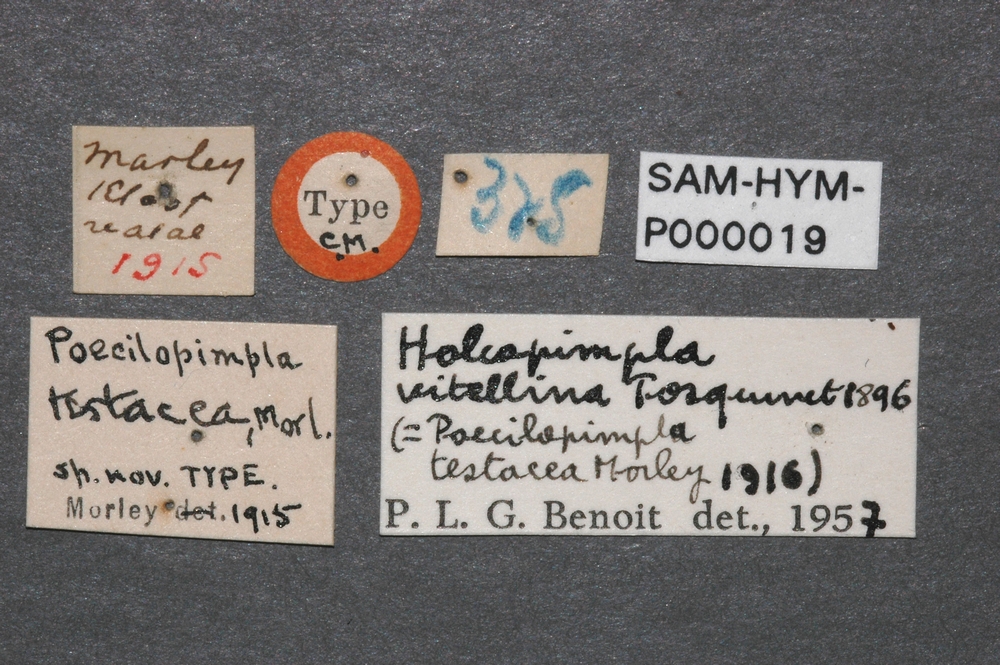 Marley
1915
Type
C.M.
SAM-HYM-
P000019
Poecilopimpla
testacea, Morl.
sp. nov. TYPE.
Morley det. 1915
Holcopimpla
vitellina Tosquinet 1896
(= Poecilopimpla
testacea Morley 1916)
P. L. G. Benoit det., 1957